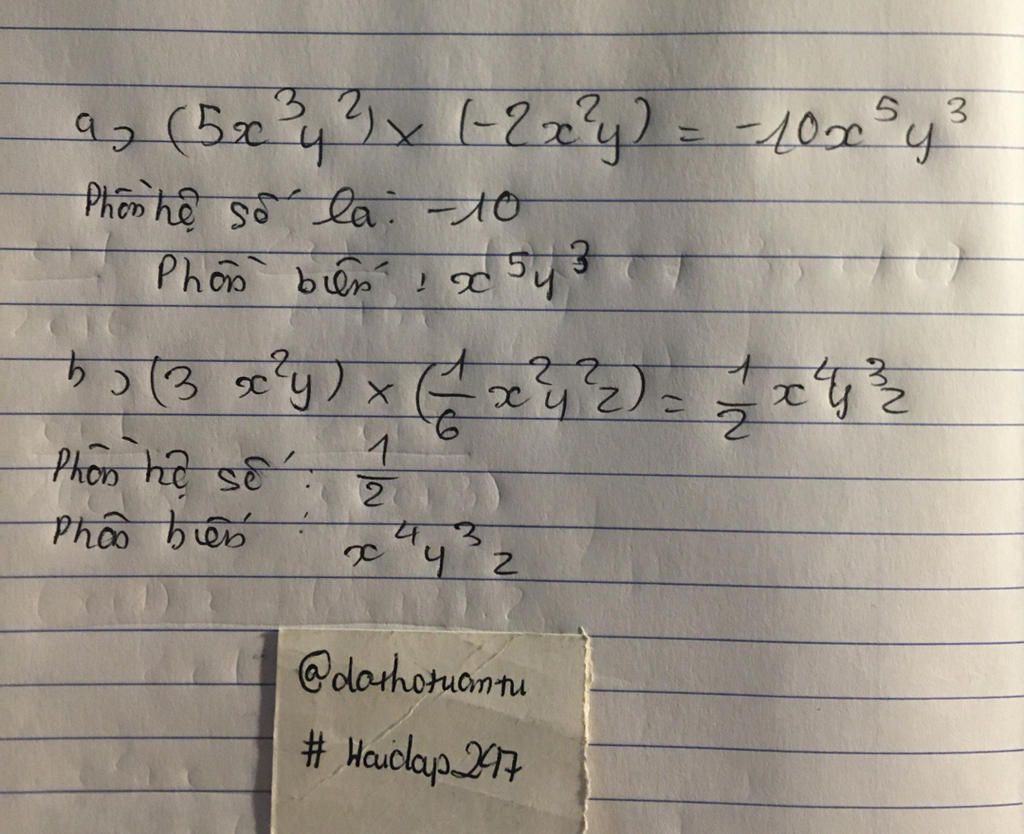 a) (5x³y²) × (-2x²y) = -10x⁵y³
Phần hệ số là: -10
Phần biến : x⁵y³
b) (3 x²y) × (1/6 x²y²z) = 1/2 x⁴y³z
Phần hệ số : 1/2
Phần biến : x⁴y³z
@dathotuantu
# Hoidap247